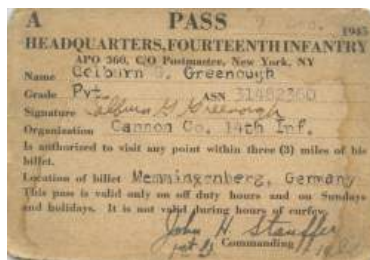 A PASS 1945
HEADQUARTERS, FOURTEENTH INFANTRY
APO 360, C/O Postmaster, New York, NY
Name Colburn G. Greenough
Grade Pvt. ASN 31482360
Signature Colburn G Greenough
Organization Cannon Co. 14th Inf.
Is authorized to visit any point within three (3) miles of his
billet.
Location of billet Memmingenberg, Germany
This pass is valid only on off duty hours and on Sundays
and holidays. It is not valid during hours of curfew.
John H. Stauffer
Commanding